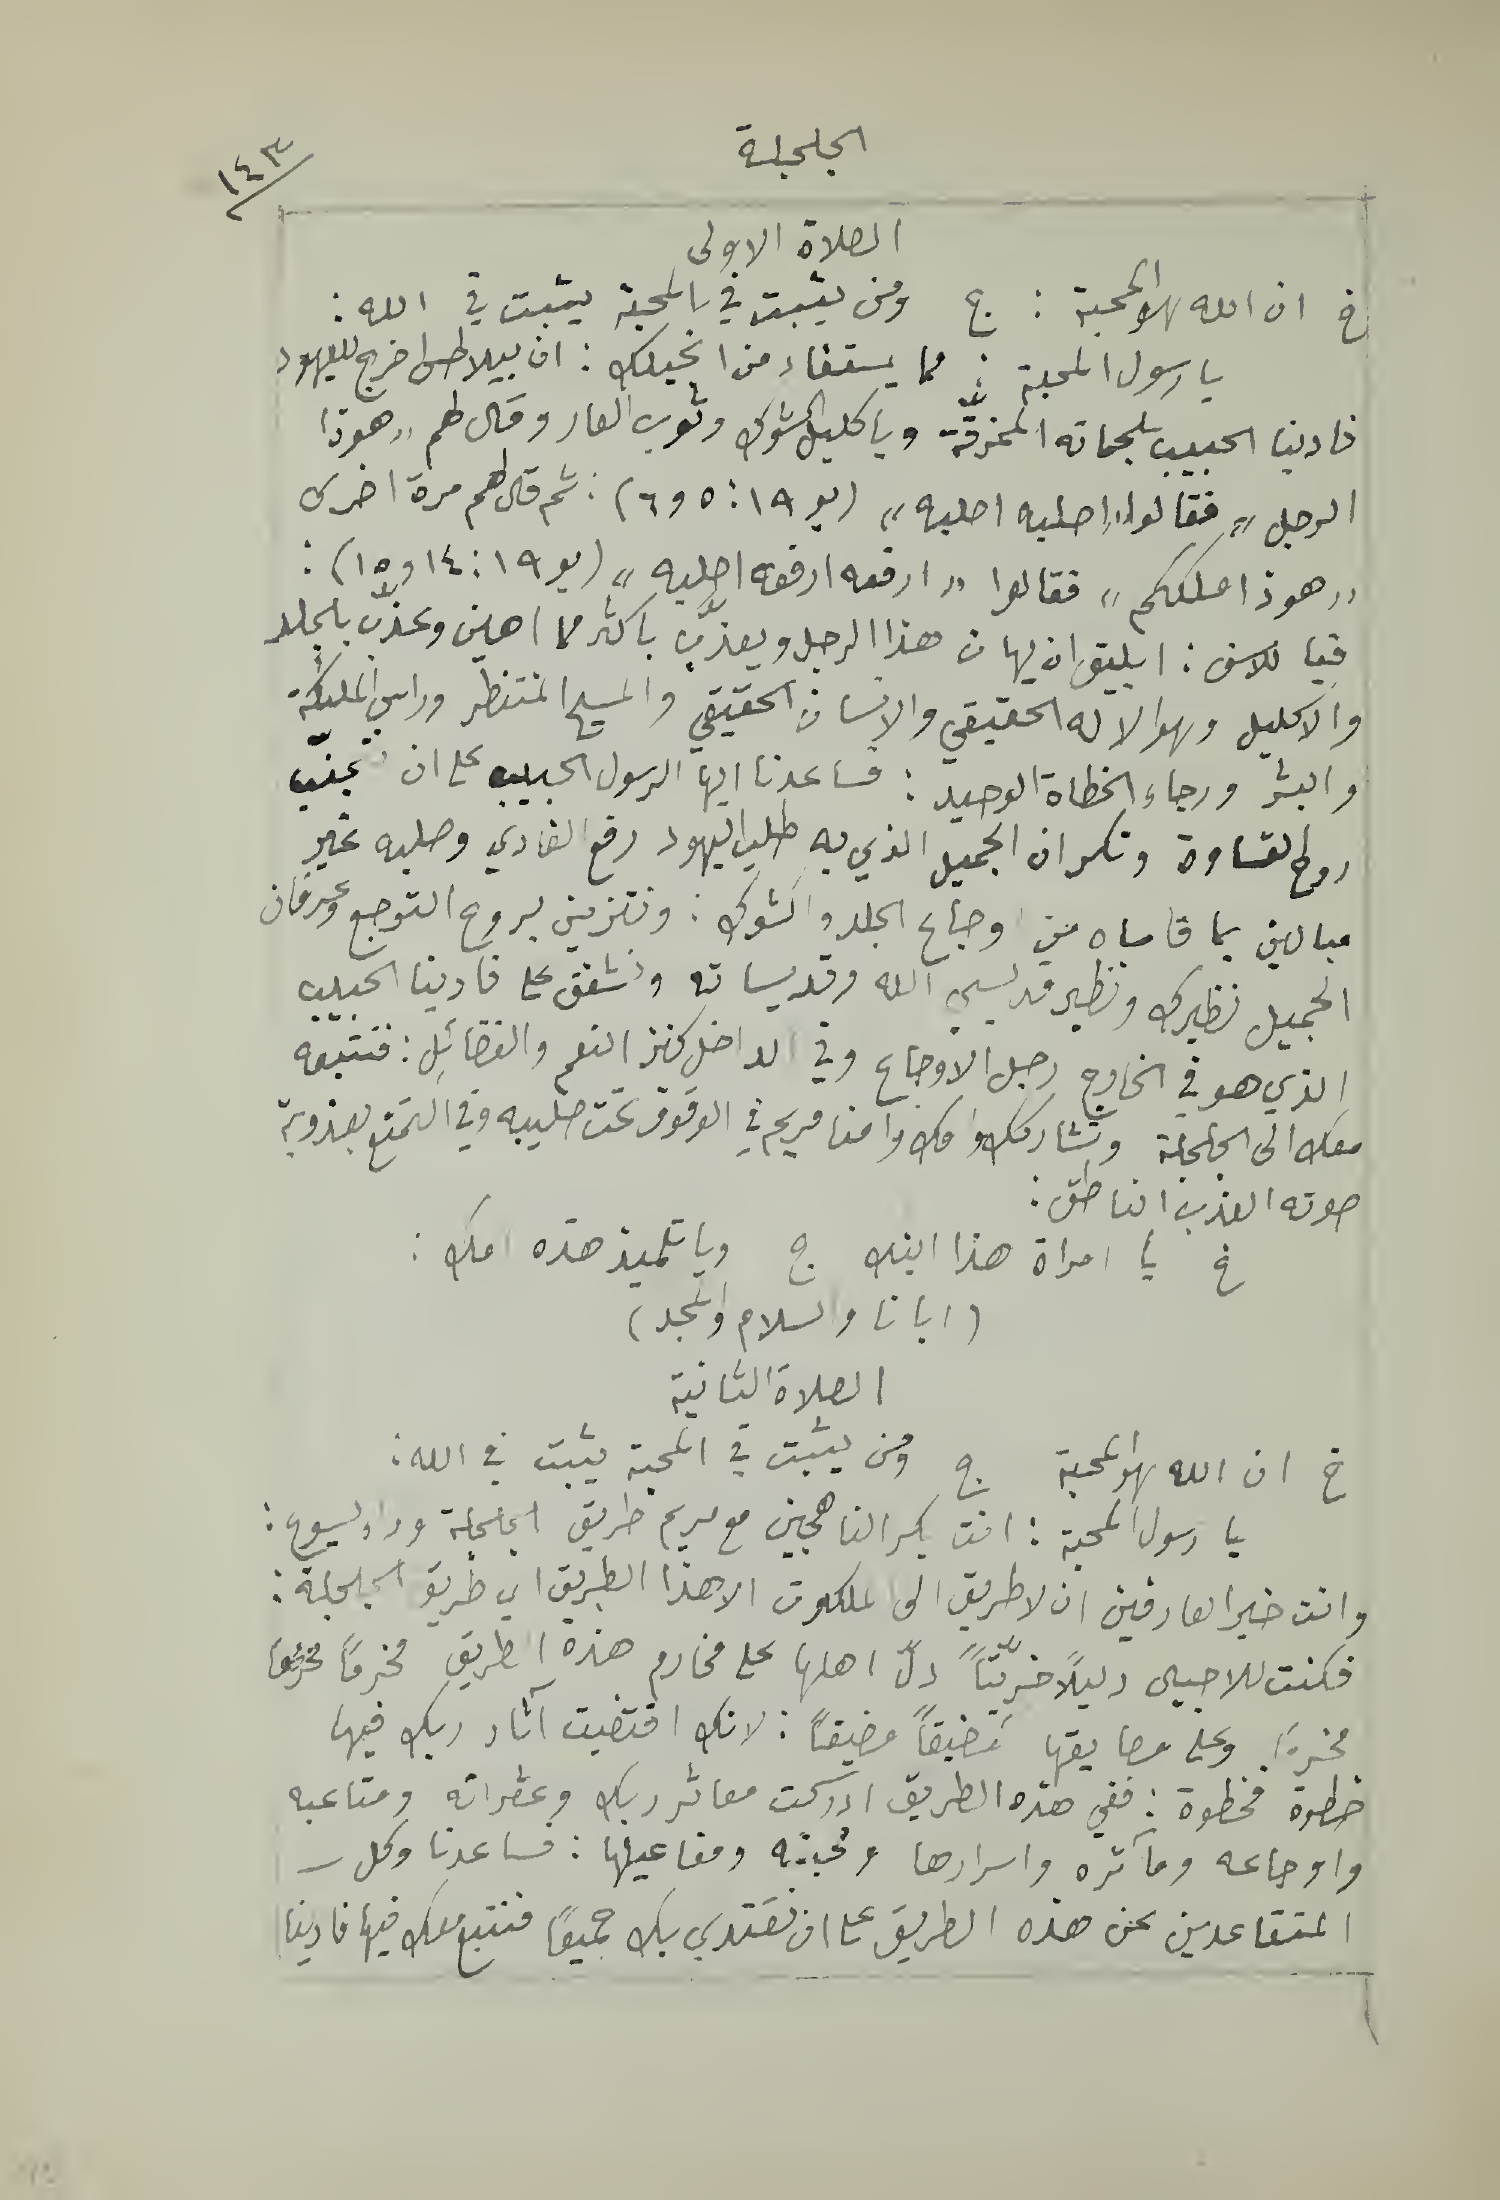 ١٤٣
الجلجلة
الصلاة الاولى
خ ان الله لهو المحبة : ج ومن يثبت في المحبة يثبت في الله :
يا رسول المحبة : مما يستفاد من انجيلك : ان بيلاطس اخرج لليهود
فادينا الحبيب بلحمانه الممزقة وباكليل الشوك وثوب العار وقال لهم "هوذا
الرجل" فقالوا "اصلبه اصلبه" (يو ١٩: ٥ و٦) : ثم قال لهم مرة اخرى
"هوذا ملككم" فقالوا "ارفعه ارفعه اصلبه" (يو ١٩: ١٤ و١٥) :
فيا للاسى : ايليق ان يهان هذا الرجل ويعذّب باكثر مما اهين وعذّب بالجلد
والاكليل وهو الاله الحقيقي والانسان الحقيقي والمسيح المنتظر وراس الملئكة
والبشر ورجاء الخطاة الوحيد : فساعدنا ايها الرسول الحبيب على ان نتجنّب
روح القساوة ونكران الجميل الذي به طلب اليهود رفع الفادي وصلبه غير
مبالين بما قاساه من اوجاع الجلد والشوك : ونتزين بروح التوجع وعرفان
الجميل نظيرك ونظير قديسي الله وقديساته ونشفق على فادينا الحبيب
الذي هو في الخارج رجل الاوجاع وفي الداخل كنز النعم والفضائل : فنتبعه
معك الى الجلجلة ونشاركك وامك وامنا مريم في الوقوف تحت صليبه وفي التمتع بعذوبة
صوته العذب الناطق :
خ يا امراة هذا ابنك ج ويا تلميذ هذه امك :
(ابانا والسلام والمجد)
الصلاة الثانية
خ ان الله لهو المحبة ج ومن يثبت في المحبة يثبت في الله :
يا رسول المحبة : انت بكر الناهجين مع مريم طريق الجلجلة وراء يسوع :
وانت خير العارفين ان لا طريق الى الملكوت الا هذا الطريق اي طريق الجلجلة :
فكنت للاجيال دليلًا خرّيتاً دلّ اهلها على مخارم هذه الطريق مخرمًا مخرمًا
وعلى مضايقها مَضيقاً مضيقاً : لانك اقتفيت آثار ربك فيها
خطوة فخطوة : ففي هذه الطريق ادركت معاثر ربك وعثراته ومتاعبه
واوجاعه ومآثره واسرارها ومحبته ومفاعيلها : فساعدنا وكل
المتقاعدين عن هذه الطريق على ان نقتدي بك جميعًا فنتبع معك فيها فادينا